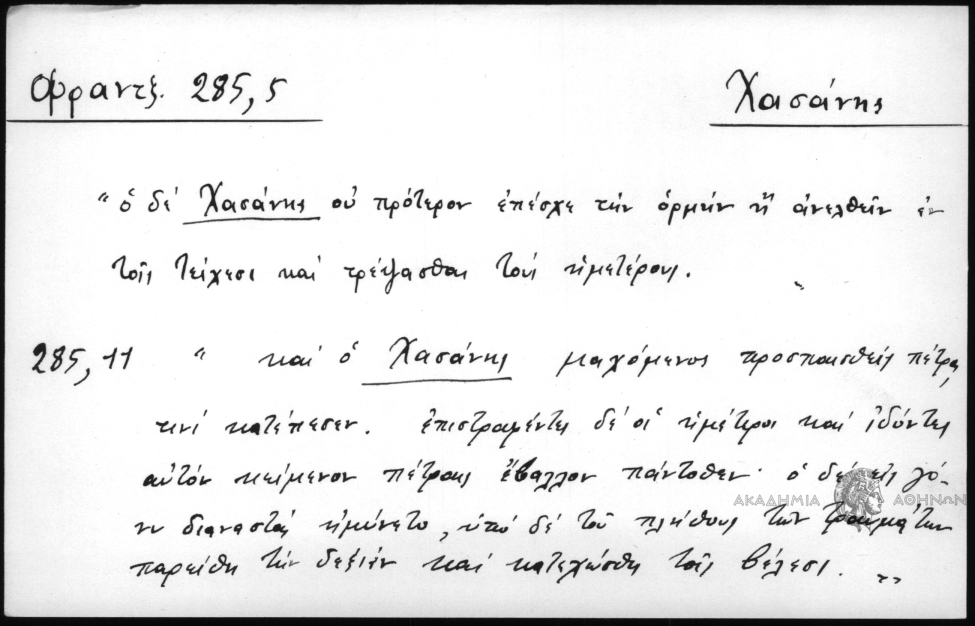 Φραντζ. 285,5
Χασάνης
"ὁ δέ Χασάνης οὐ πρότερον ἐπέσχε τήν ὁρμήν ἤ ἀνελθεῖν ἐν
τοῖς τείχεσι καί τρέψασθαι τούς ἡμετέρους.
285,11 " καί ὁ Χασάνης μαχόμενος προσπταισθείς πέτρᾳ
τινί κατέπεσεν. ἐπιστραφέντες δέ οἱ ἡμέτεροι καί ἰδόντες
αὐτόν κείμενον πέτραις ἔβαλλον πάντοθεν· ὁ δέ εἰς γό-
νυ διαναστάς ἠμύνετο, ὑπό δέ τοῦ πλήθους τῶν τραυμάτων
παρείθη τήν δεξιάν καί κατεχώσθη τοῖς βέλεσι. "
ΑΚΑΔΗΜΙΑ ΑΘΗΝΩΝ